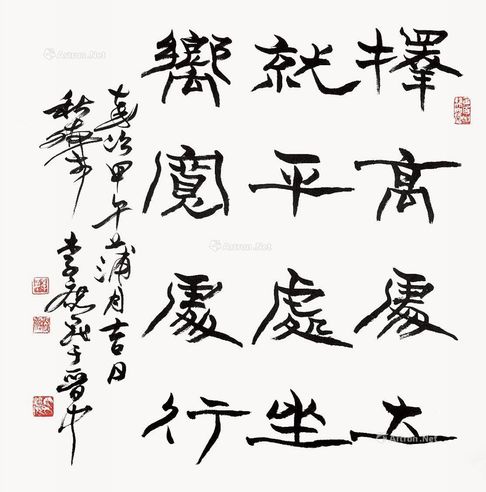 擇高處立
就平處坐
嚮寬處行
歲次甲午蒲月吉日
秋 李 于晉中
Artron.Net
Artron.Net
Artron.Net